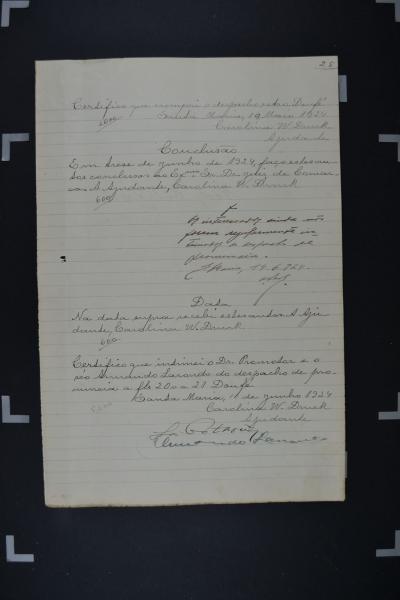 25
Certifico que cumpri o despacho retro. Doufé
Santa Maria, 19 Maio 1924
Carolina W. Druck
Ajudante
600
Conclusão
Em trese de junho de 1924, faço estes au-
tos conclusos ao Exmo Sr. Dr. Juiz da Comar-
ca. A Ajudante, Carolina W. Druck
600
ainda não
foram regularmente in-
timados o despacho de
pronuncia.
S. Maria, 14.6.924.
Data
Na data supra recebi estes autos. A Aju-
dante, Carolina W. Druck
600
Certifico que intimei o Dr. Promotor e o
réo Armando do despacho de pro-
nuncia a fls 20 a 21 Doufé
Santa Maria, de junho 1924
Carolina W. Druck
Ajudante
Armando